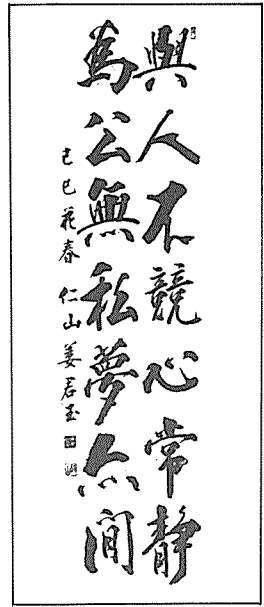 與人不競心常靜
為公無私夢亦閒
己巳花春 仁山 姜君玉